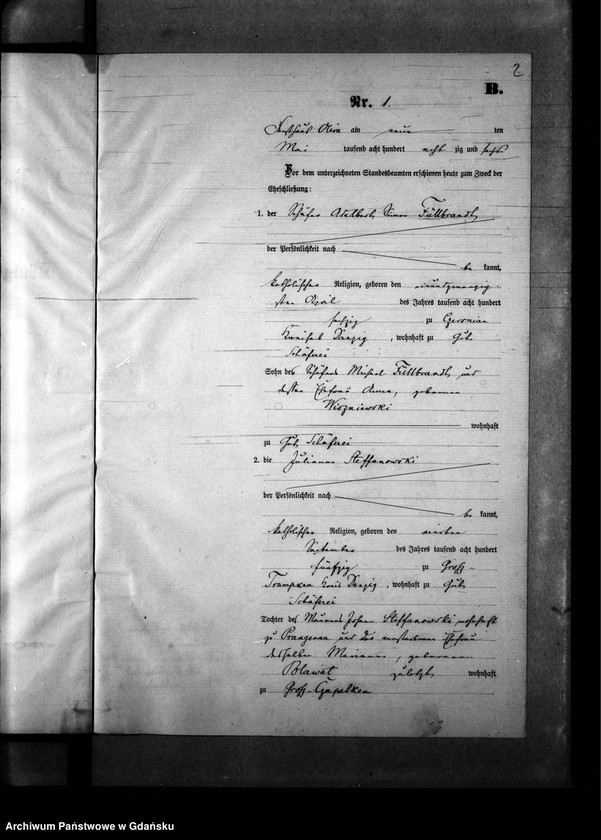 2
B.
Nr. 1.
am neun ten
Mai tausend acht hundert acht zig und sechs
Vor dem unterzeichneten Standesbeamten erschienen heute zum Zweck der
Eheschließung:
1. der Schäfer Adalbert Simon Füllbrandt,
der Persönlichkeit nach
be kannt,
katholischer Religion, geboren den neunundzwanzig-
sten April des Jahres tausend acht hundert
sechzig zu Czernian
Kreises Danzig, wohnhaft zu Gut
Schäferei
Sohn des Schäfers Michael Füllbrandt und
dessen Ehefrau Anna, geborenen
Wiszniewski
wohnhaft
zu Gut Schäferei
2. die Julianna Steffanowski
der Persönlichkeit nach
be kannt,
katholischer Religion, geboren den vierten
September des Jahres tausend acht hundert
fünfzig zu Groß
Trampken Kreis Danzig, wohnhaft zu Gut
Schäferei
Tochter des Maurers Johann Steffanowski wohnhaft
zu Prangenau und der verstorbenen Ehefrau
desselben Marianna, geborenen
Blawat zuletzt wohnhaft
zu Groß-Czapelken
Archiwum Państwowe w Gdańsku